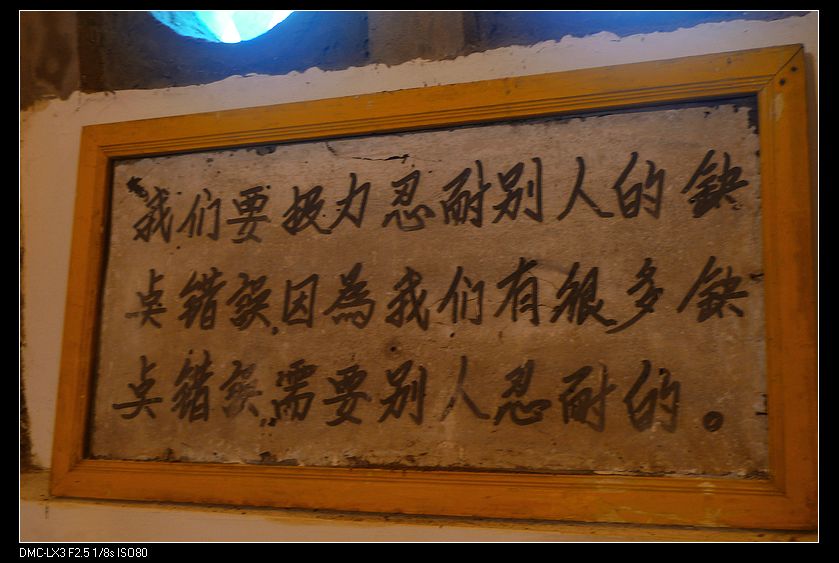 我们要极力忍耐别人的缺
点错误因為我们有很多缺
点错误需要别人忍耐的。
DMC-LX3 F2.5 1/8s ISO80